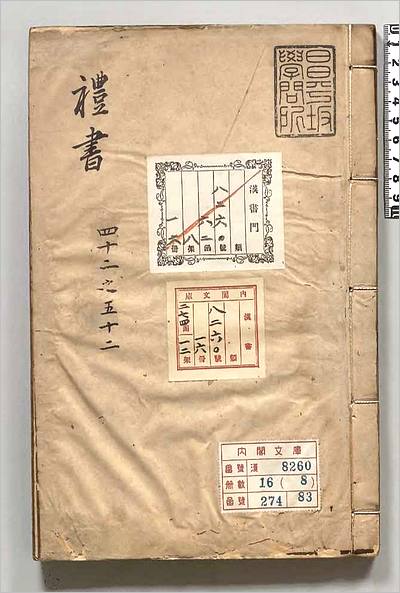 禮書
四十二之五十二
昌平坂
學問所
漢書門
類
八二六〇號
六二函
八架
一六冊
內閣文庫
漢書
類
八二六〇號
一六冊
二七四函
一二架
內閣文庫
番號 漢 8260
冊數 16 ( 8 )
函號 274 83
1 2 3 4 5 6 7 8 9